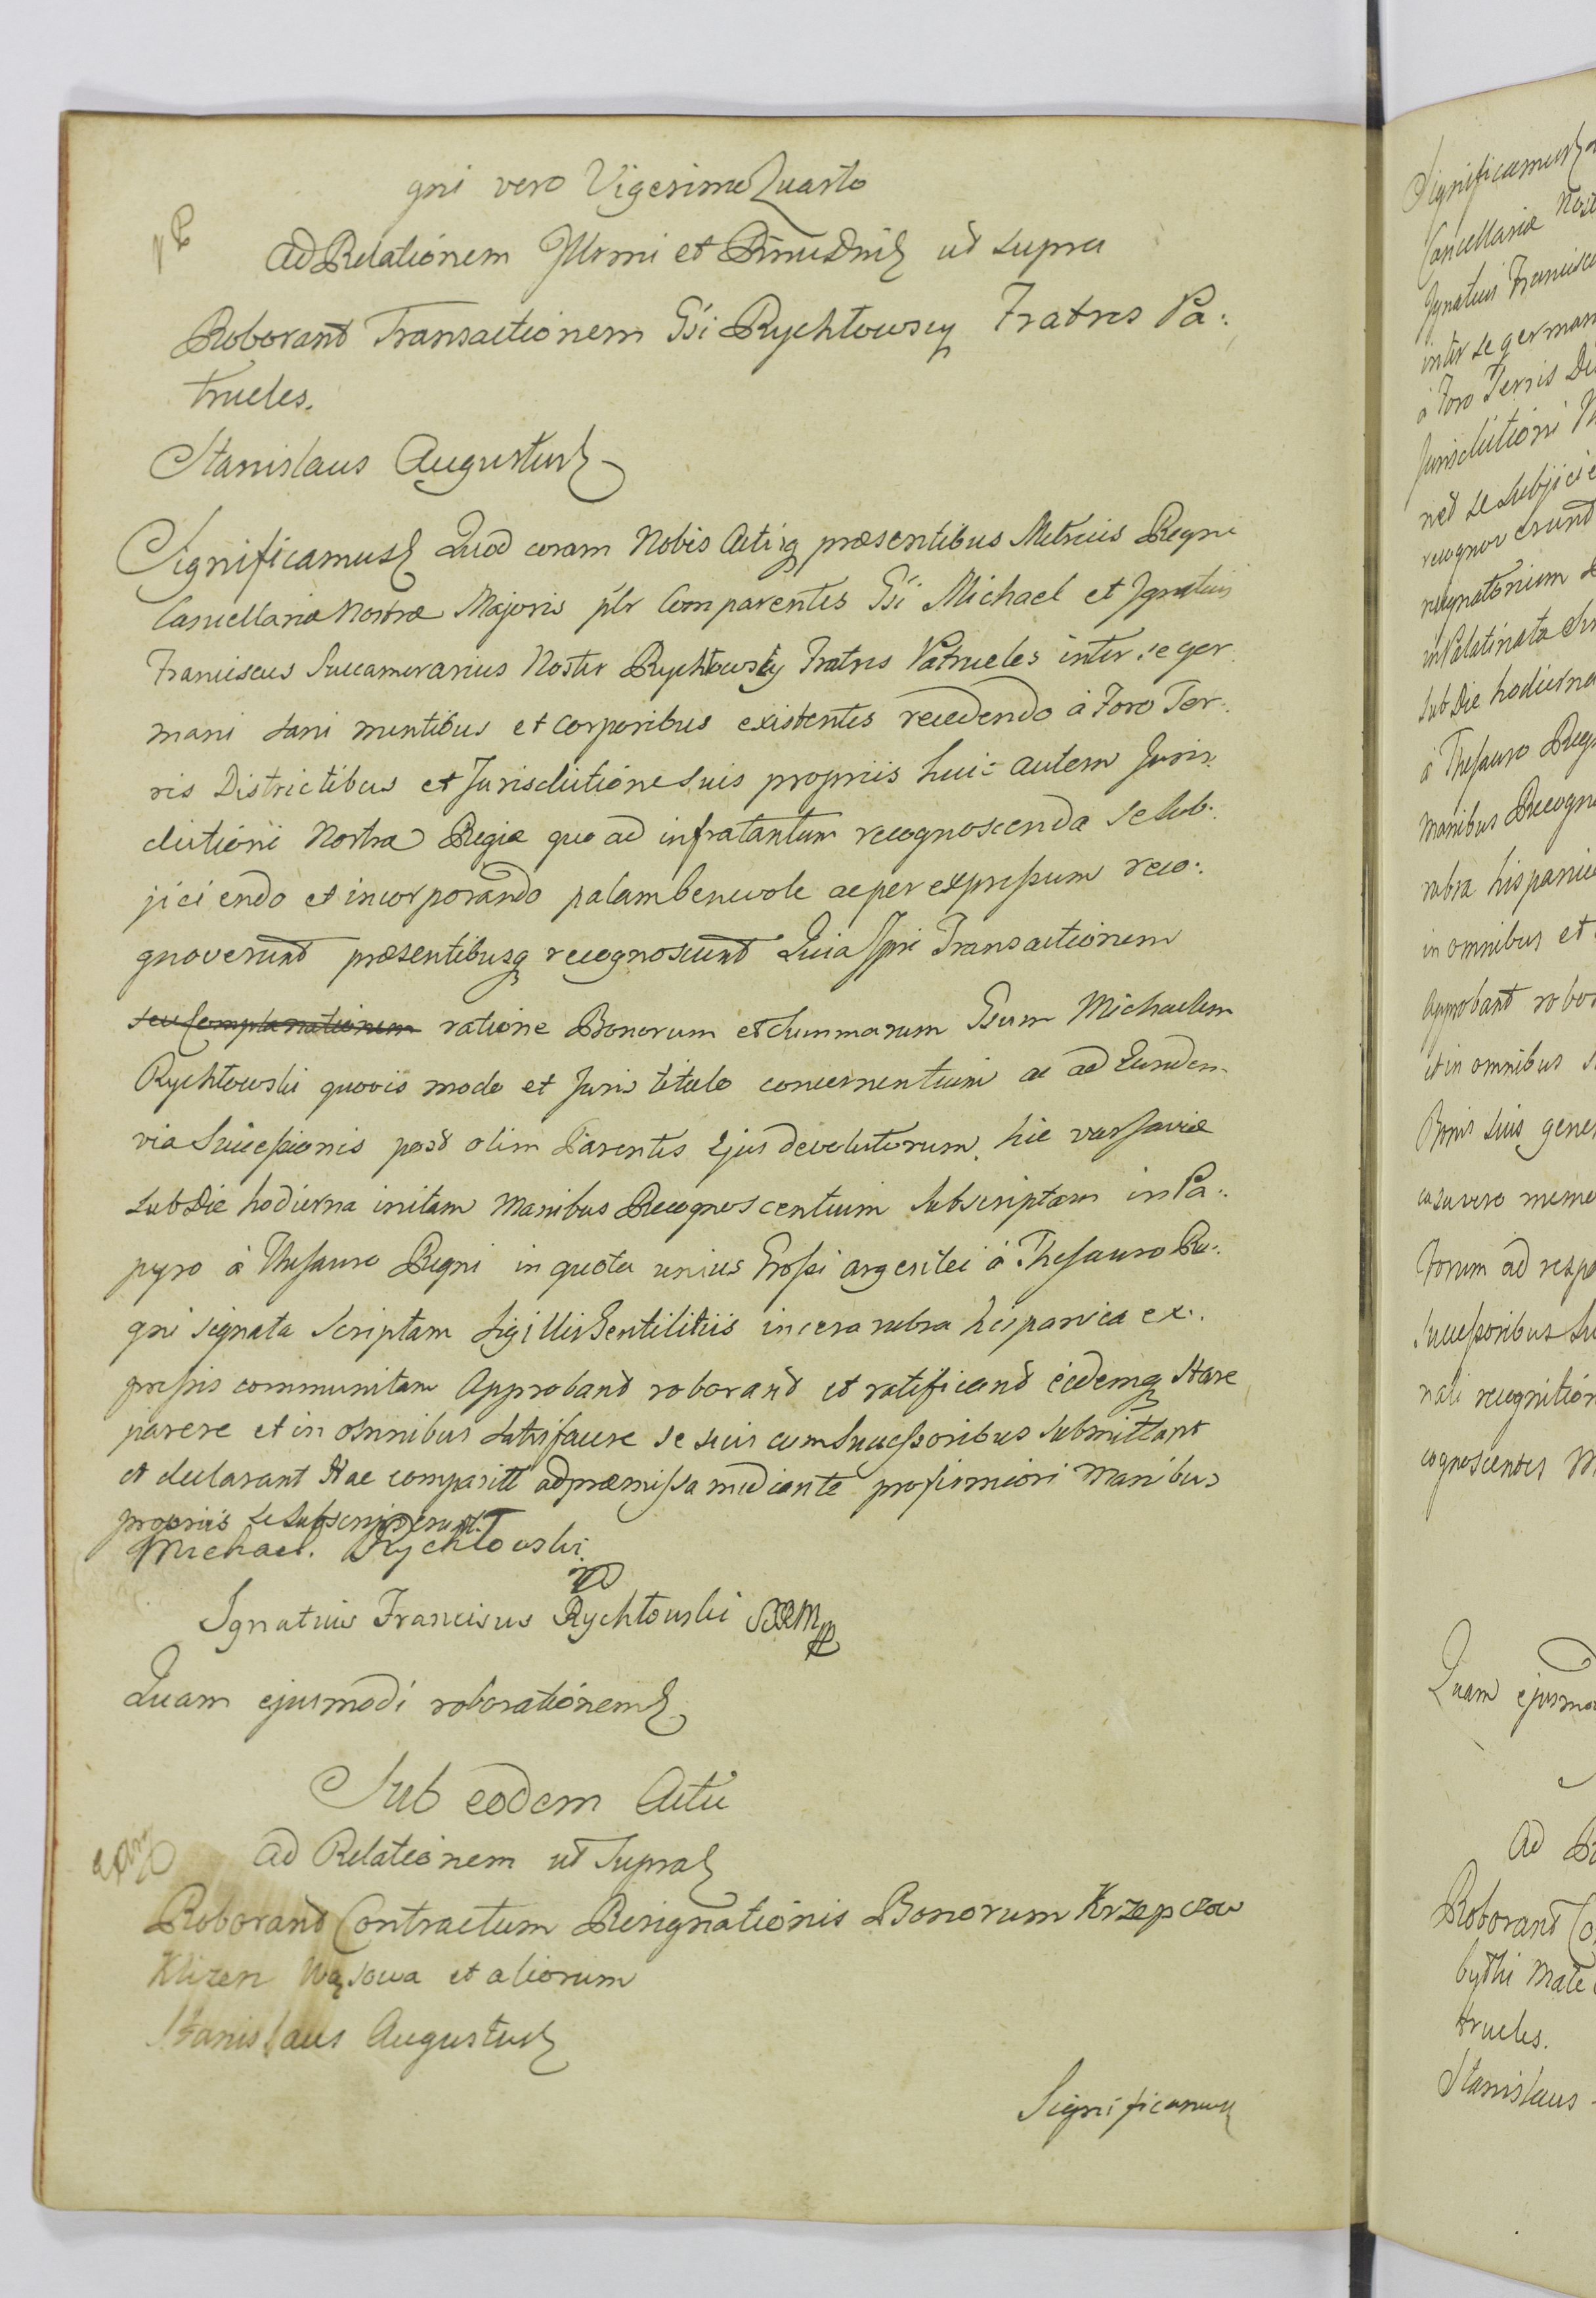 gni vero Vigesimo Quarto
Ad Relationem Illrmi et ut supra
Roborant Transactionem Gsi Rychłowscy Fratres Pa:
trueles.
Stanislaus Augustus
Significamus Quod coram Nobis Actisq præsentibus Metrices Regni
Cancellariæ Nostræ Majoris plr Comparentes Gsi Michael et Ignatius
Franciscus Succamerarius Noster Rychłowscy Fratres Patrueles inter se ger
mani sani mentibus et corporibus existentes recedendo à Foro Ter:
ris Districtibus et Jurisdictione suis propriis huic autem Juris:
dictioni Nostræ Regiæ quo ad infratantum recognoscenda se sub:
jiciendo et incorporando palam benevole ac per expressum reco:
gnoverunt præsentibusq recognoscunt Quia Ipsi Transactionem
seu Complanationem ratione Bonorum et Summarum Gsum Michaelem
Rychłowski quovis modo et Juris titulo concernentium ac ad Eundem
via Successionis post olim Parentes Ejus devolutorum, hic Varsaviæ
sub Die hodierna initam Manibus Recognoscentium Subscriptam in Pa:
pyro à Thesauro Regni in quota unius Grossi argentei à Thesauro Re:
gni signata Scriptam Sigillis Gentilitiis in cera rubra hispanica ex:
pressis communitam Approbant roborant et ratificant eidemq Stare
parere et in omnibus satisfacere se suis cum Successoribus submittant
et declarant Hac comparitt ad præmissa mediante pro firmiori Manibus
propriis se subscripserunt.
Michael Rychłowski
Ignatius Franciscus Rychłowski
Quam ejusmodi roborationem
Sub eodem Actu
ad Relationem ut supra
Roborant Contractum Resignationis Bonorum Krzepczow
Klizen Wąsowa et aliorum
Stanislaus Augustus
Significamus
Significamus
Cancellariæ Nost
Ignatius Francisc
inter se german
à Foro Terris Di
Jurisdictioni N
net se subjicie
recognoverunt
in Palatinatu
sub Die hodierna
à Thesauro Reg
Manibus Recogn
rubra hispanic
in omnibus et
Approbant robor
et in omnibus
Bonis suis gene
Forum ad resp
Successoribus Su
nali recognition
cognoscentes M
Quam ejusmo
Ad
Roborant Co
trueles.
Stanislaus